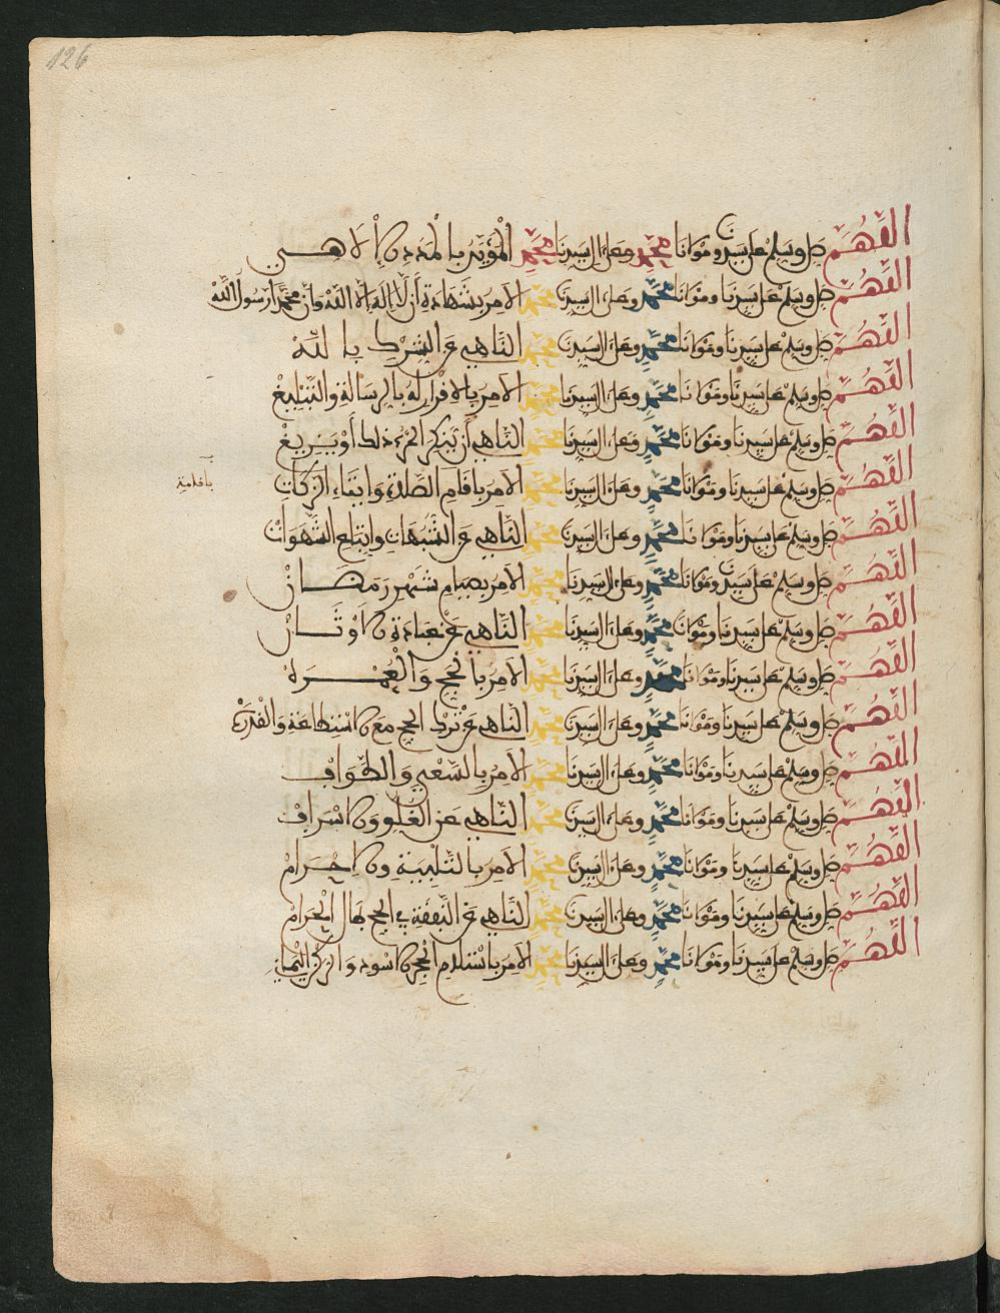 126
اللهم صل وسلم على سيدنا ومولانا محمد وعلى ءال سيدنا محمد المؤيد بالمدد الالاهي
اللهم صل وسلم على سيدنا ومولانا محمد وعلى ءال سيدنا محمد الامر بشهادة أن لا إله إلا الله وأن محمدا رسول الله
اللهم صل وسلم على سيدنا ومولانا محمد وعلى ءال سيدنا محمد الناهي عن الشرك بالله
اللهم صل وسلم على سيدنا ومولانا محمد وعلى ءال سيدنا محمد الامر بالافرار له بالرسالة والتبليغ
اللهم صل وسلم على سيدنا ومولانا محمد وعلى ءال سيدنا محمد الناهي أن ينكر المرء ذلك أو يزيغ
اللهم صل وسلم على سيدنا ومولانا محمد وعلى ءال سيدنا محمد الامر باقام الصلاة وايتاء الزكات
باقامة
اللهم صل وسلم على سيدنا ومولانا محمد وعلى ءال سيدنا محمد الناهي عن الشبهات واتباع الشهوات
اللهم صل وسلم على سيدنا ومولانا محمد وعلى ءال سيدنا محمد الامر بصيام شهر رمضان
اللهم صل وسلم على سيدنا ومولانا محمد وعلى ءال سيدنا محمد الناهي عن عبادة الاوثان
اللهم صل وسلم على سيدنا ومولانا محمد وعلى ءال سيدنا محمد الامر بالحج والعمرة
اللهم صل وسلم على سيدنا ومولانا محمد وعلى ءال سيدنا محمد الناهي عن ترك الحج مع الاستطاعة والقدرة
اللهم صل وسلم على سيدنا ومولانا محمد وعلى ءال سيدنا محمد الامر بالسعي والطواف
اللهم صل وسلم على سيدنا ومولانا محمد وعلى ءال سيدنا محمد الناهي عن الغلو والاسراف
اللهم صل وسلم على سيدنا ومولانا محمد وعلى ءال سيدنا محمد الامر بالتلبية والاحرام
اللهم صل وسلم على سيدنا ومولانا محمد وعلى ءال سيدنا محمد الناهي عن النفقة في الحج بمال الحرام
اللهم صل وسلم على سيدنا ومولانا محمد وعلى ءال سيدنا محمد الامر باستلام الحجر الاسود والركن اليماني